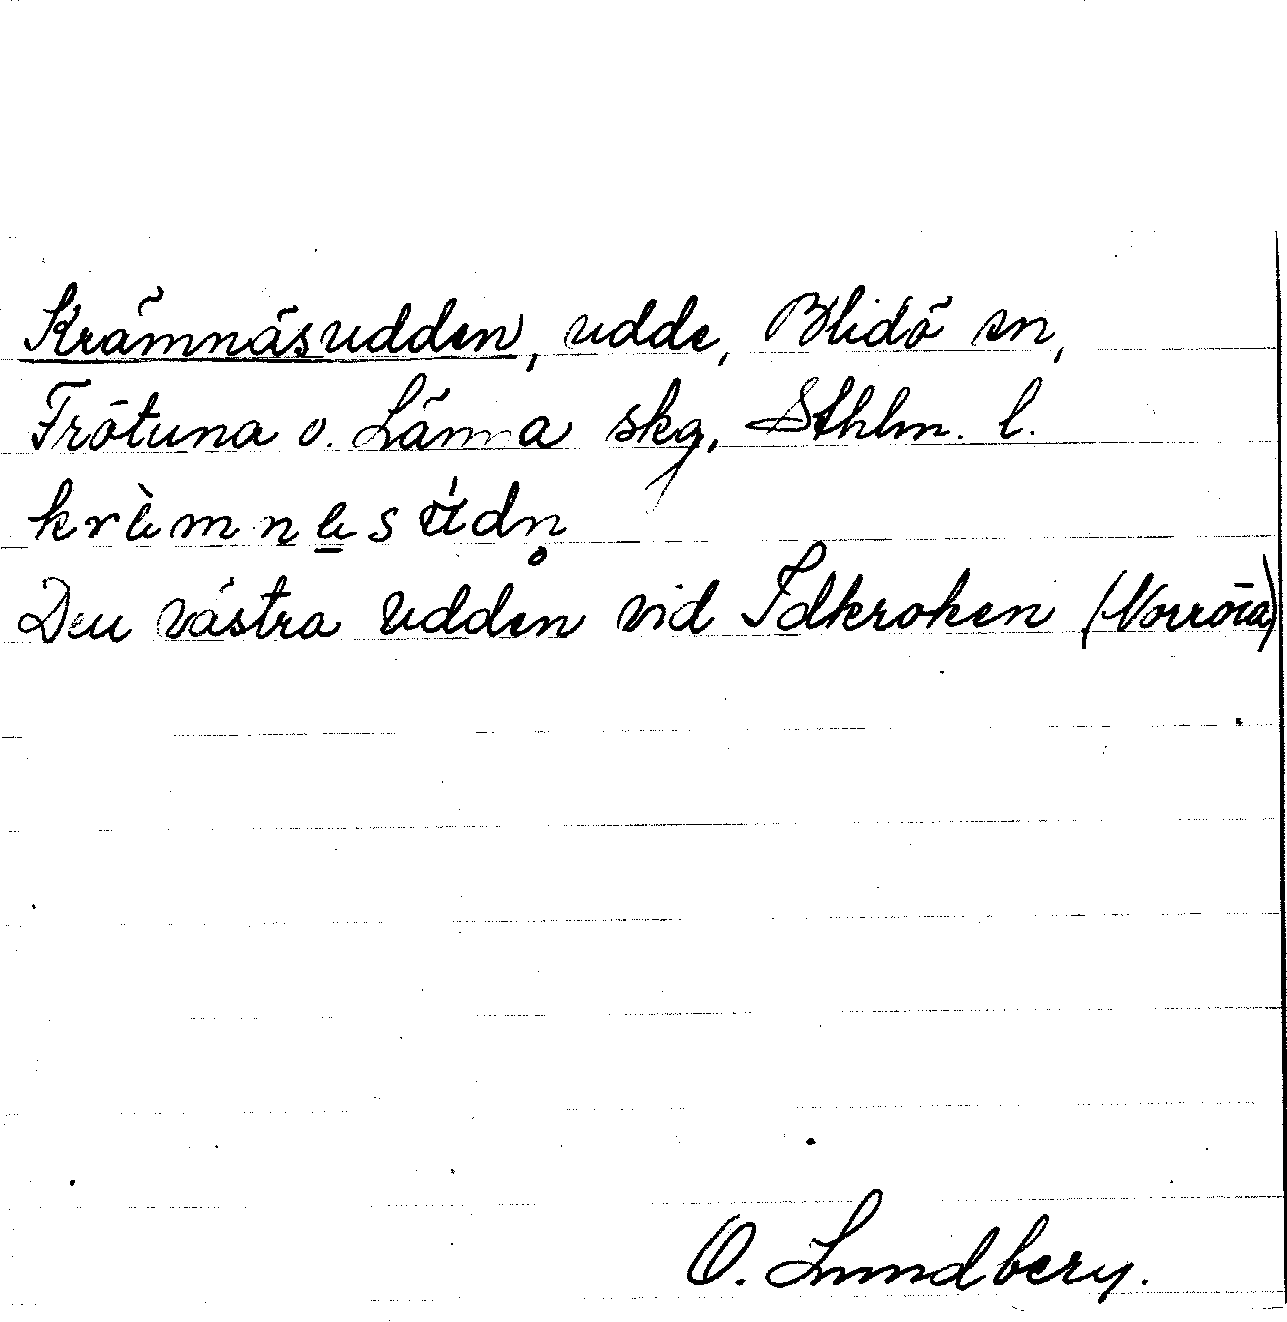 Krämnäsudden, udde, Blidö sn,
Frötuna o. Länna skg, Sthlm. l.
Den västra udden vid Idkroken (Norröra)
O. Lundberg.